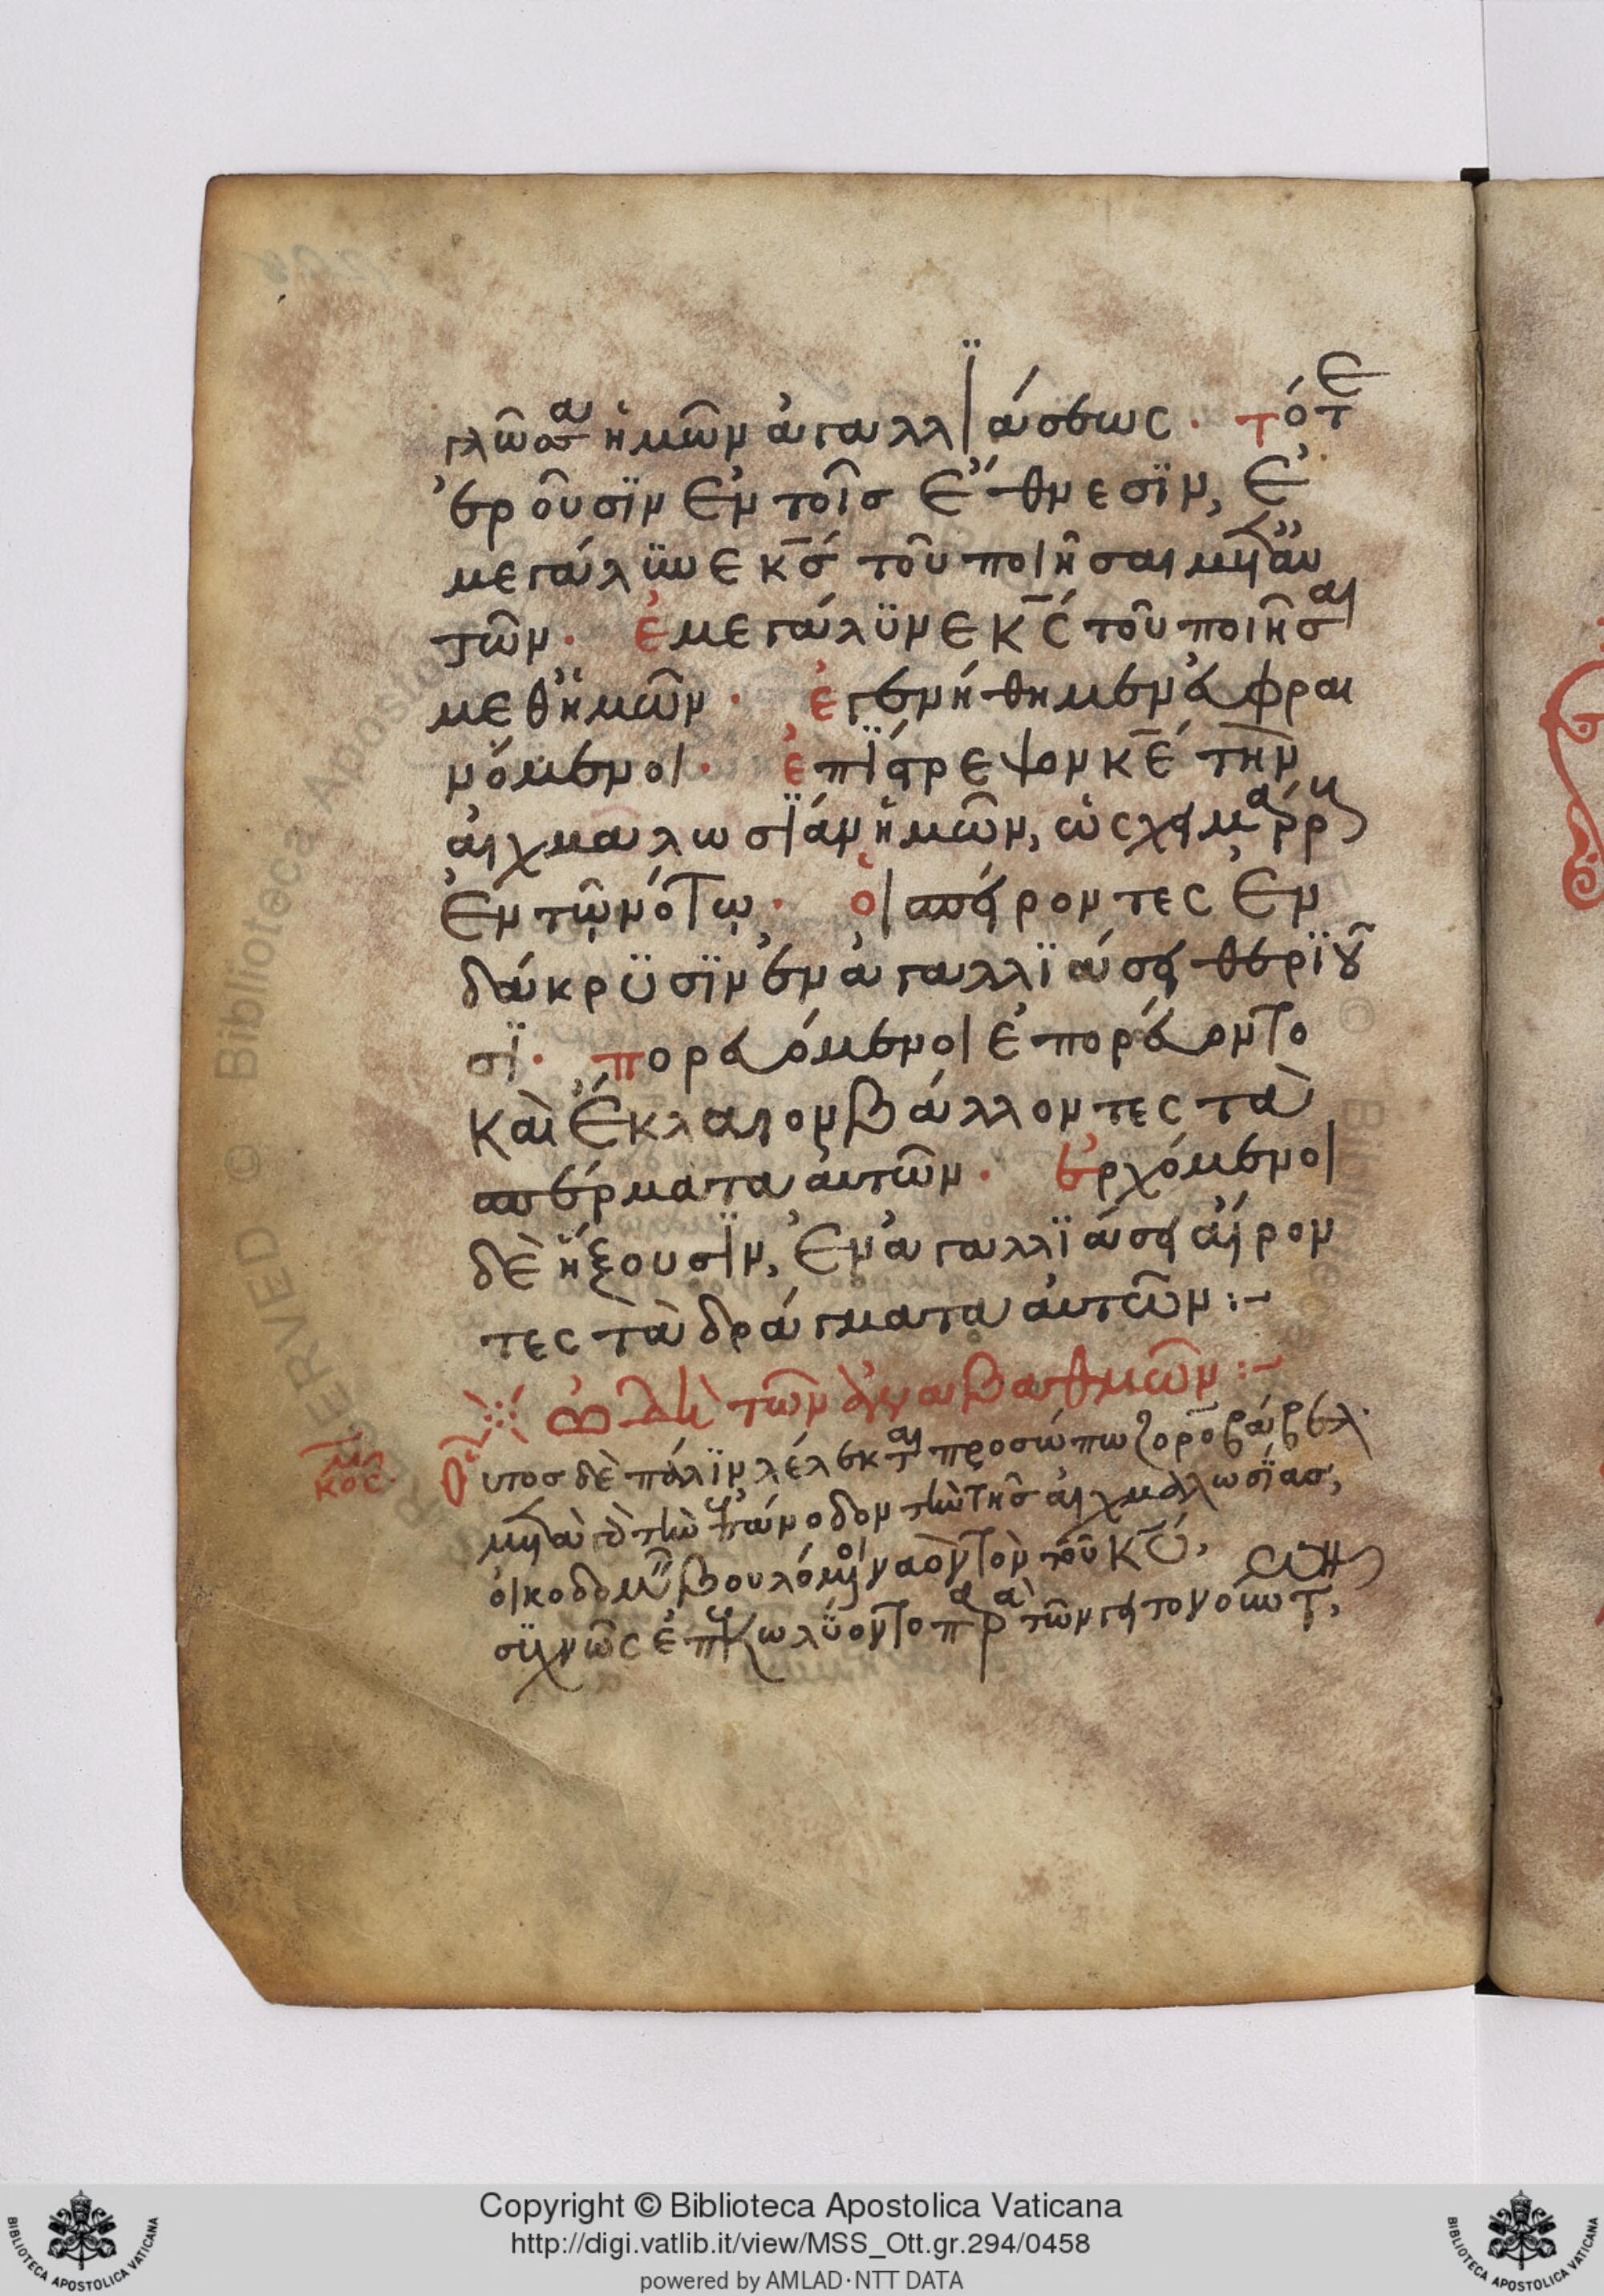 γλῶσσα ἡμῶν ἀγαλλϊάσεως· τότε
ἐροῦσϊν ἐν τοῖσ ἔθνεσϊν, ἐ
μεγάλϋνε κ̅σ̅ τοῦ ποιῆσαι μετ' αυ
τῶν· ἐμεγάλϋνε κ̅ς̅ τοῦ ποιῆσαι
μεθ' ἡμῶν· ἐγενήθημεν ἐυφραι
νόμενοι· ἐπίστρεψον κ̅ε̅ τὴν
ἀιχμαλωσϊάν ἡμῶν, ὡς χειμάρρους
ἐν τῷ νότω· ὁι σπείροντες ἐν
δάκρϋσϊν ἐν ἀγαλλϊάσει θερϊοῦ
σϊ· πορευόμενοι ἐπορέυοντο
καὶ ἔκλαιον βάλλοντες τὰ
σπέρματα ἀυτῶν· ἐρχόμενοι
δὲ ἥξουσϊν, ἐν ἀγαλλϊάσει ἄιρον
τες τὰ δράγματα ἀυτῶν :-
τῶν ἀναβαθμῶν :-
Οὗτοσ δὲ πάλϊν λέλεκται προσώπω ζοροβάβελ
μετὰ τὴν ἐπάνοδον τὴν τῆσ ἀιχμαλωσϊασ,
ὀικοδομεῖν βουλόμενοι ναὸν τὸν τοῦ κ̅υ̅,
συχνῶς ἐπεκωλύοντο παρὰ τῶν γειτονούντων,
Copyright © Biblioteca Apostolica Vaticana
http://digi.vatlib.it/view/MSS_Ott.gr.294/0458
powered by AMLAD·NTT DATA